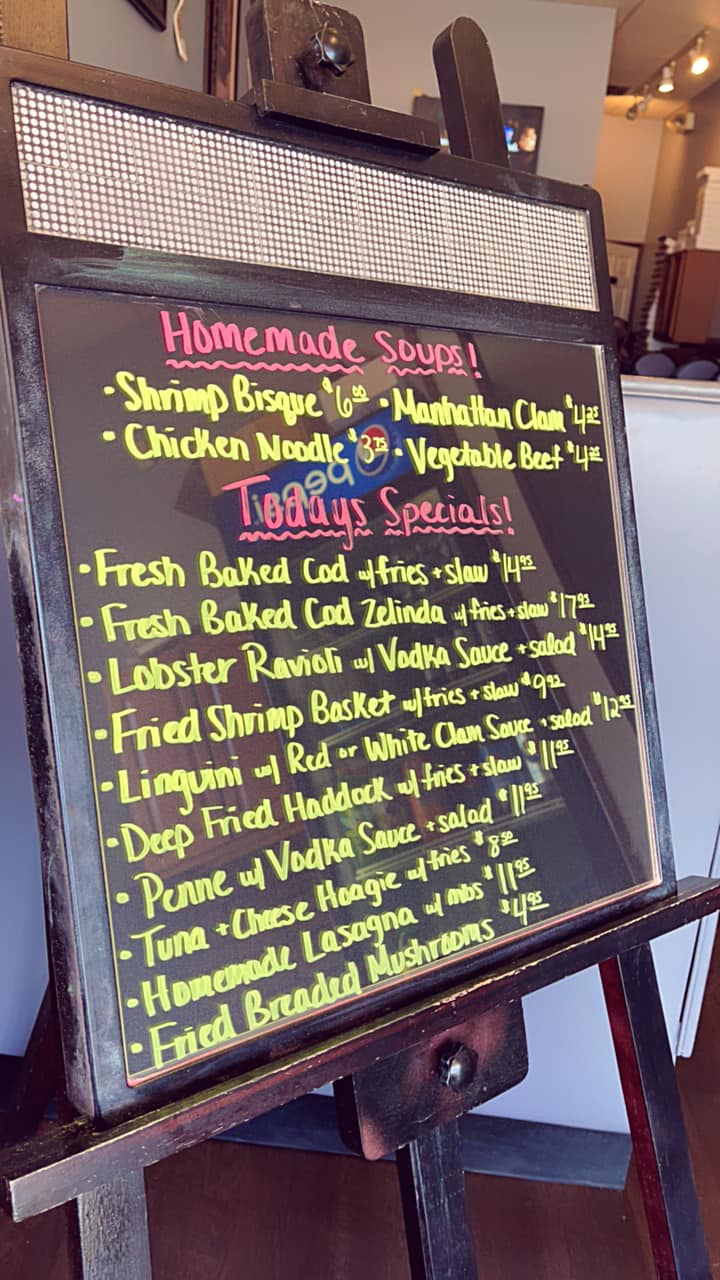 Homemade Soups!
• Shrimp Bisque $6.00 • Manhattan Clam $4.25
• Chicken Noodle $3.75 • Vegetable Beef $4.25
pepsi
Todays Specials!
• Fresh Baked Cod w/ fries + slaw $14.95
• Fresh Baked Cod Zelinda w/ fries + slaw $17.95
• Lobster Ravioli w/ Vodka Sauce + salad $14.95
• Fried Shrimp Basket w/ fries + slaw $9.95
• Linguini w/ Red or White Clam Sauce + salad $12.95
• Deep Fried Haddock w/ fries + slaw $11.95
• Penne w/ Vodka Sauce + salad $11.95
• Tuna + Cheese Hoagie w/ fries $8.50
• Homemade Lasagna w/ mbs $11.95
• Fried Breaded Mushrooms $4.95